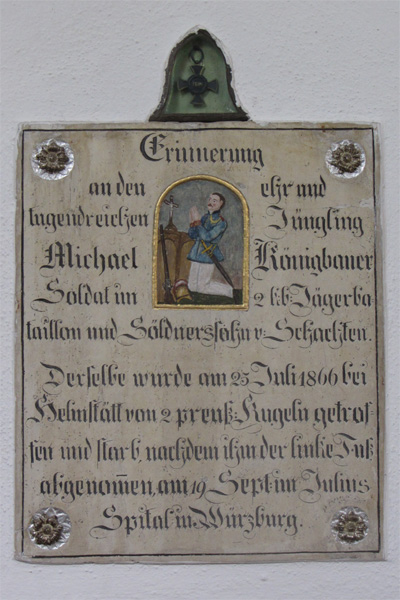 Erinnerung
an den ehr und
tugendreichen Jüngling
Michael Königbauer
Soldat im 2 k:b: Jägerba
taillon und Söldnerssohn v: Schachten.
Derselbe wurde am 25 Juli 1866 bei
Helmstätt von 2 preuß: Kugeln getrof=
fen und starb, nachdem ihm der linke Fuß
abgenom̅en, am 19 Sept: im Julius
Spital in Würzburg.